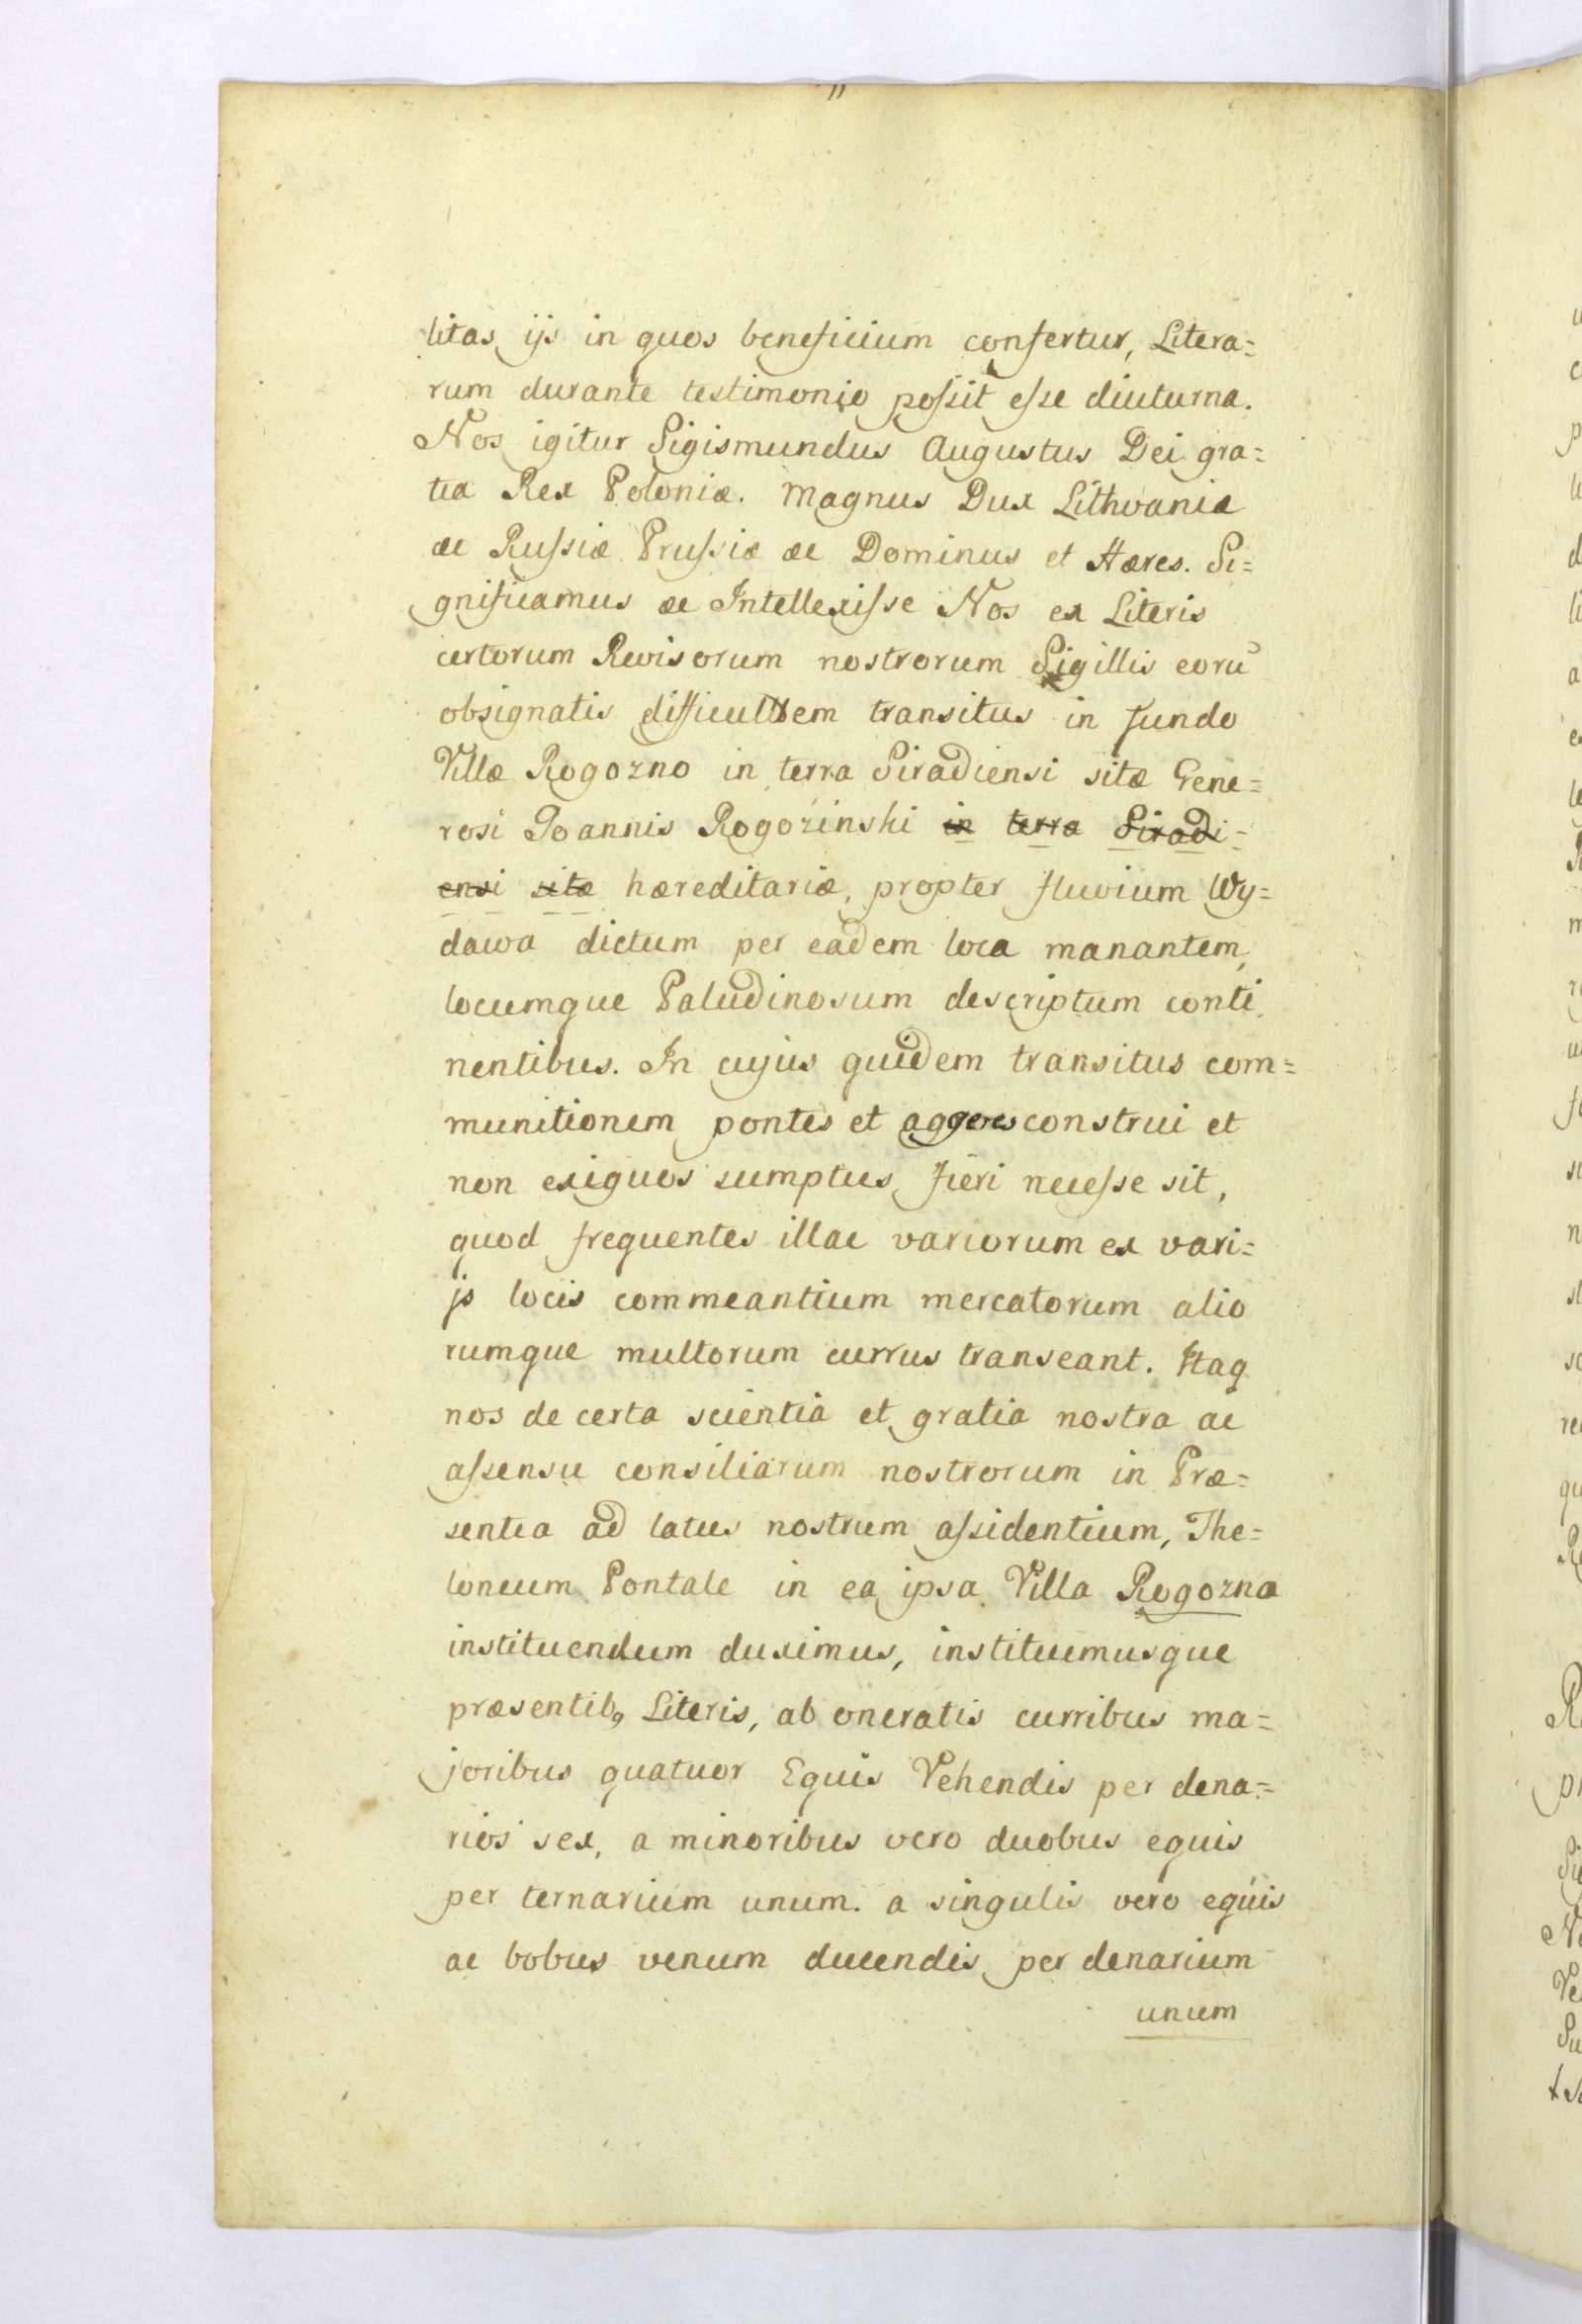 litas ijs in quos beneficium confertur, Litera=
rum durante testimonio poſsit eſse diuturna.
Nos igitur Sigismundus Augustus Dei gra=
tia Rex Poloniæ. Magnus Dux Lithvaniæ
ac Ruſsiæ Pruſsiæ ac Dominus et Hæres. Si=
gnificamus ac Intellexiſse Nos ex Literis
certorum Revisorum nostrorum Sigillis eorū
obsignatis difficultem transitus in fundo
Villæ Rogozno in terra Siradiensi sitæ Gene=
rosi Joannis Rogoźinski in terra Siradi=
ensi sitæ hæreditariæ, propter fluvium Wy=
dawa dictum per eadem loca manantem,
locumque Paludinosum descriptum conti
nentibus. In cujus quidem transitus com=
munitionem pontes et aggeres construi et
non exiguos sumptus fieri neceſse sit,
quod frequentes illac variorum ex vari=
js locis commeantium mercatorum alio
rumque multorum currus transeant. Itaq
nos de certa scientia et gratia nostra ac
aſsensu consiliarum nostrorum in Præ=
sentia ad latus nostrum aſsidentium, The=
loneum Pontale in ea ipsa Villa Rogozna
instituendum duximus, instituimusque
præsentibꝰ Literis, ab oneratis curribus ma=
joribus quatuor Equis Vehendis per dena=
rios sex, a minoribus vero duobus equis
per ternarium unum. a singulis vero equis
ac bobus venum ducendis per denarium
unum